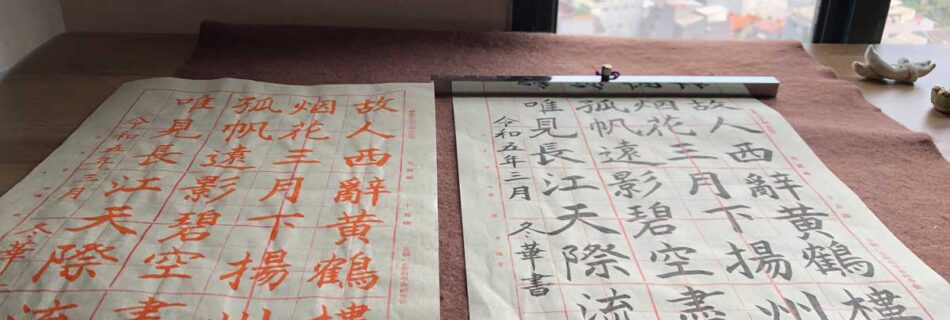 故人西辭黃鶴樓
烟花三月下揚州
孤帆遠影碧空盡
唯見長江天際流
令和五年三月 久華書
故人西辭黃鶴
烟花三月下揚州
孤帆遠影碧空盡
唯見長江天際流
令和五年三月 久華